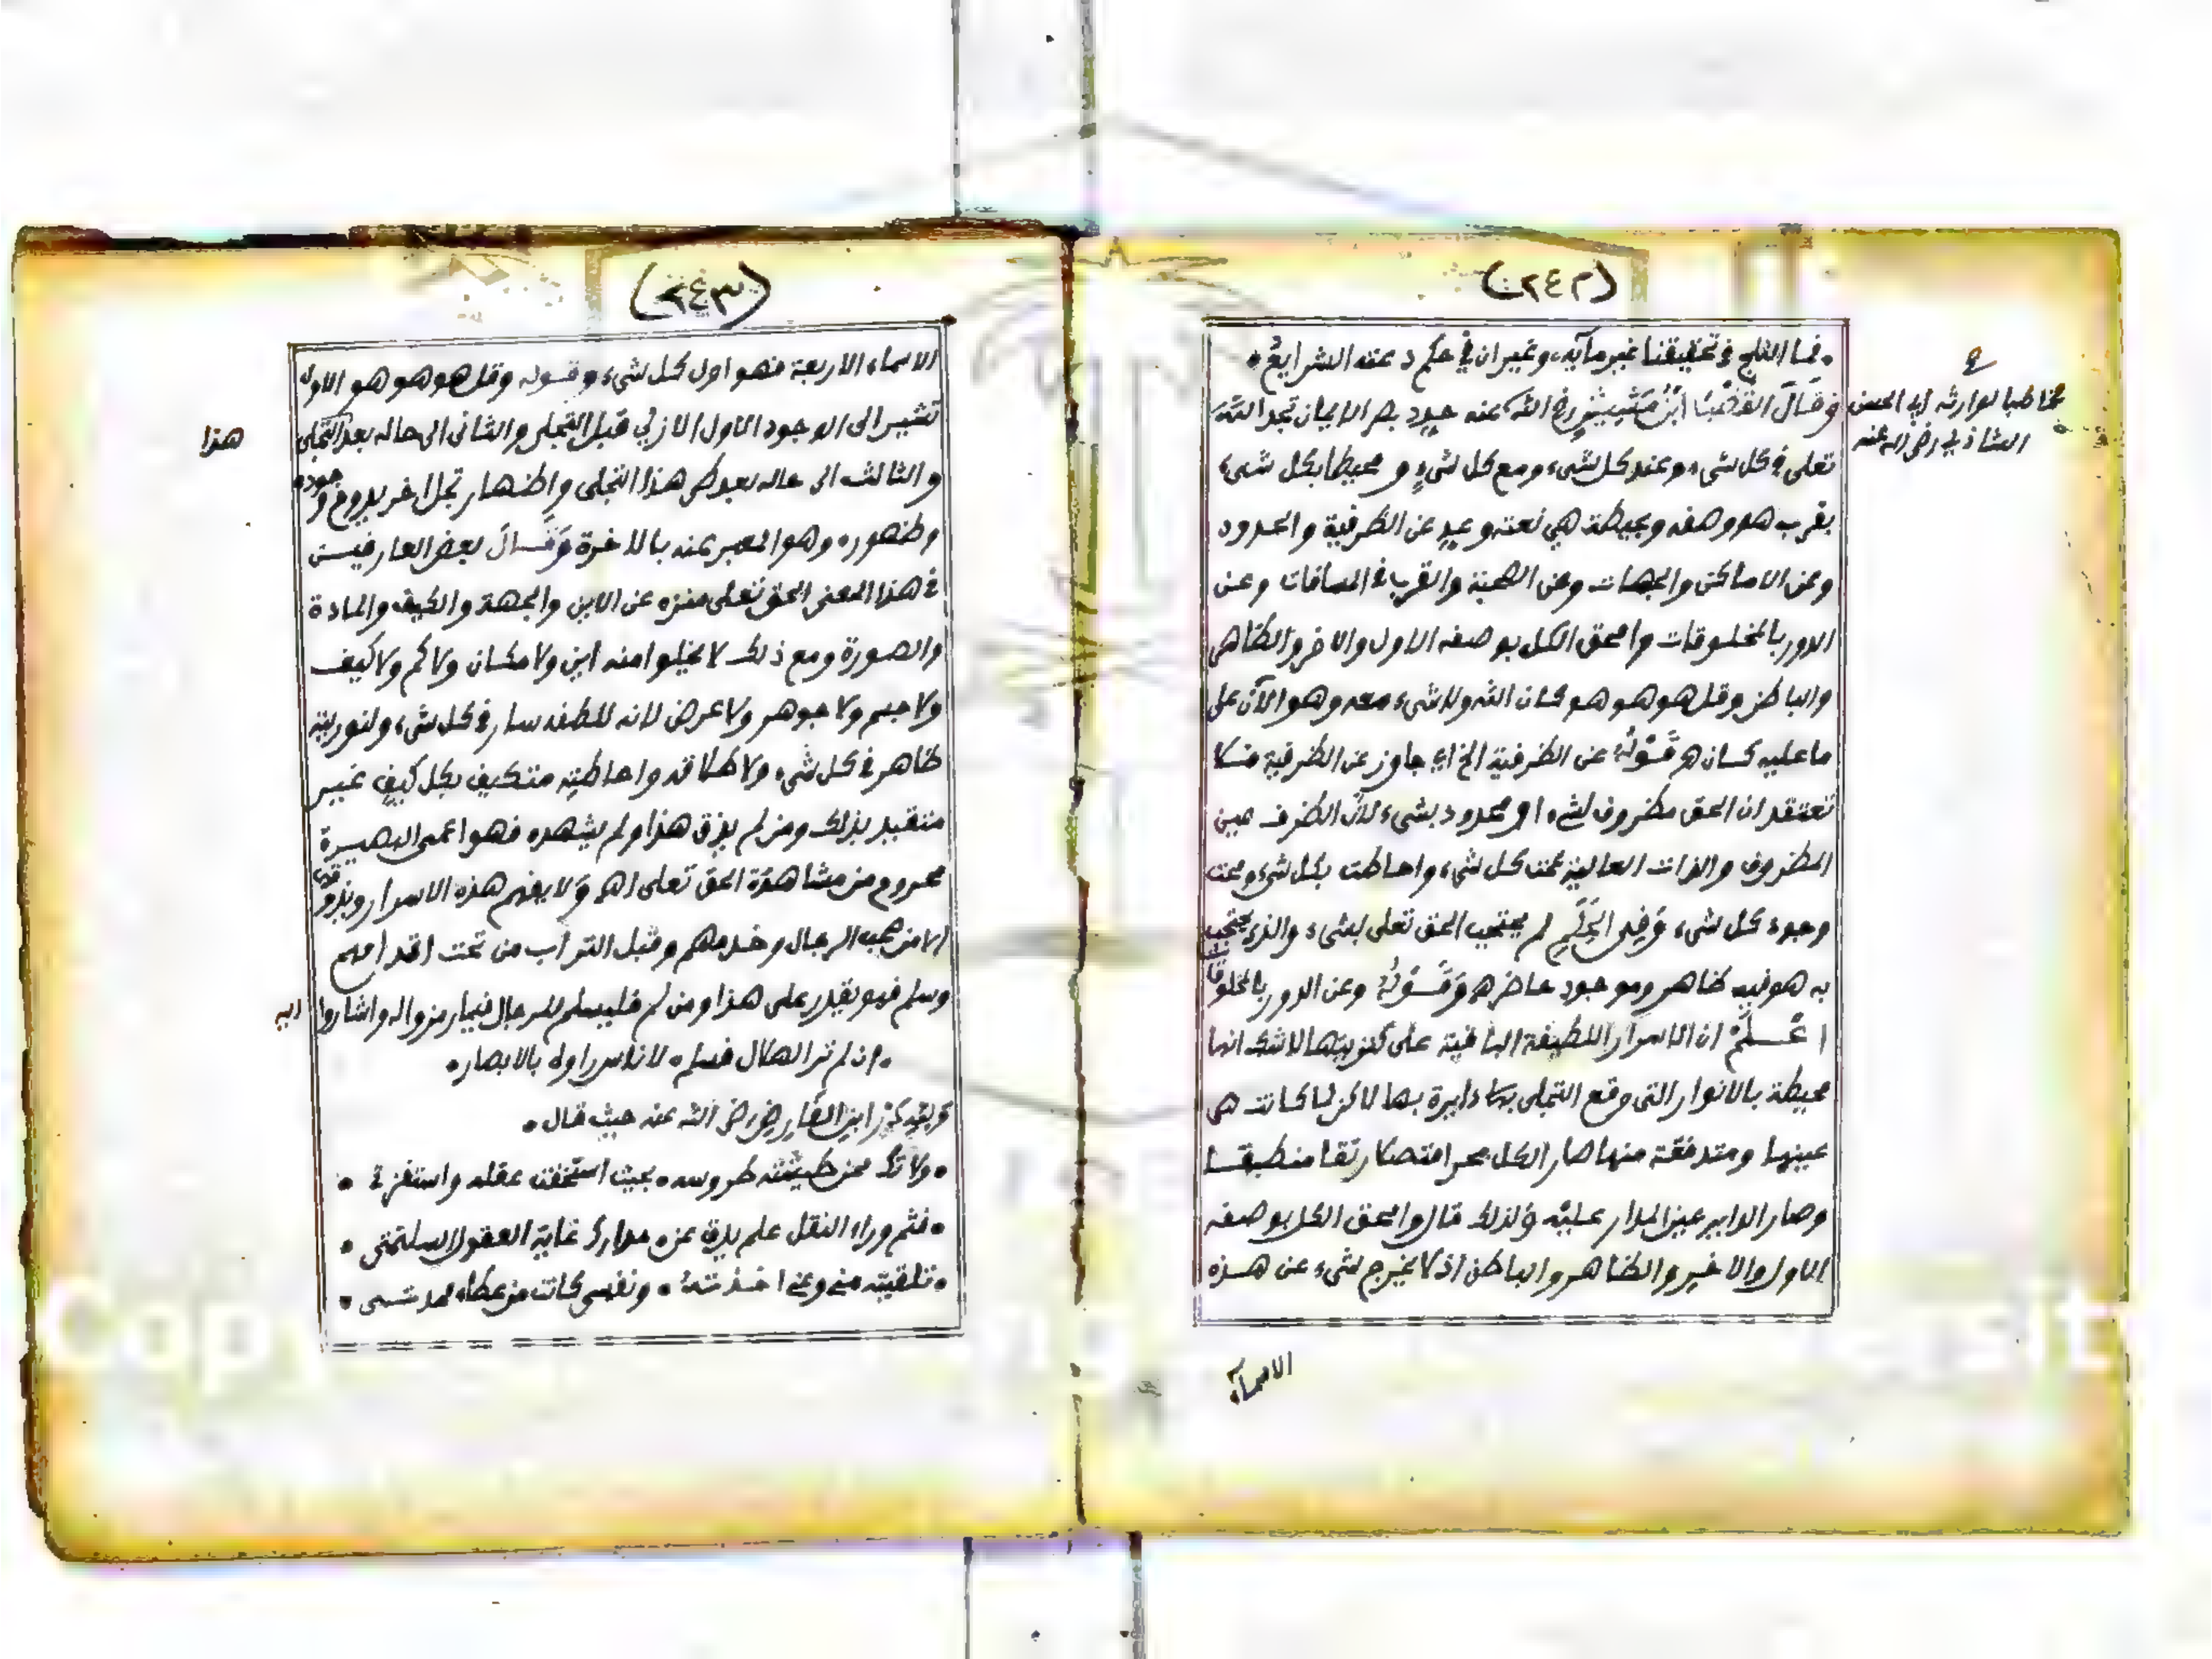 (٢٤٢)
• فما الثلج في تحقيقنا غير مآيه • وغيران في حكم دعته الشرايع •
وقال القطب ابن مشيش رضي الله عنه حدد بصر الايمان تجد الله
مخاطبا لوارثه ابي الحسن
الشاذلي رضي الله عنه
تعلى في كل شيء وعند كل شيء ومع كل شيء ومحيطا بكل شيء
بقرب هو وصفه وبحيطة هي نعته وعد عن الظرفية والحدود
وعن الاماكن والجهات وعن الصحبة والقرب في المسافات وعن
الدور بالمخلوقات وامحق الكل بوصفه الاول والاخر والظاهر
والباطن وقل هو هو هو كان الله ولا شيء معه وهو الآن على
ما عليه كان ه قوله عن الظرفية الخ اي جاوز عن الظرفية فلا
تعتقد ان الحق مظروف لشيء او محدود بشيء لان الظرف عين
المظروف والذات العالية عمت كل شيء واحاطت بكل شيء ومحت
وجود كل شيء وفي الحكم لم يحتجب الحق تعلى بشيء والذي يحتجب
به هو فيه ظاهر وموجود حاضر ه وقوله وعن الدور بالمخلوقات
اعلم ان الاسرار اللطيفة الباقية على كنزيتها لا شك انها
محيطة بالانوار التي وقع التجلي بها دايرة بها لاكن لما كانت هي
عينها ومتدفقة منها صار الكل بحرا متصلا رتقا منطبقا
وصار الداير عين المدار عليه ولذلك قال وامحق الكل بوصفه
الاول والاخير والظاهر والباطن اذ لا يخرج شيء عن هذه
الاسماء
(٢٤٣)
الاسماء الاربعة فهو اول كل شيء وقوله وقل هو هو هو الاول
تشير الى الوجود الاول الازلي قبل التجلي والثاني الى حاله بعد التجلي
هذا
والثالث الى حاله بعد طي هذا التجلي واظهار تجل اخر يدوم وجوده
وظهوره وهو المعبر عنه بالاخرة وقال بعض العارفين
في هذا المعنى الحق تعلى منزه عن الاين والجهة والكيف والمادة
والصورة ومع ذلك لا يخلوا منه اين ولا مكان ولا كم ولا كيف
ولا جسم ولا جوهر ولا عرض لانه للطفه سار في كل شيء ولنوريته
ظاهر في كل شيء ولاطلاقه واحاطته متكيف بكل كيف غير
متقيد بذلك ومن لم يذق هذا ولم يشهده فهو اعمى البصيرة
محروم من مشاهدة الحق تعلى اه ولا يفهم هذه الاسرار ويذوقها
الا من صحب الرجال وخدمهم وقبل التراب من تحت اقدامهم
وسلم فهو يقدر على هذا ومن لم فليسلم للرجال فيما رمزوا له واشاروا اليه
• ان لم تر الهلال فسلم • لاناس راوه بالابصار •
ابن الفارض رضي الله عنه حيث قال •
• ولا تك ممن طيشته طروسه • بحيث استخفت عقله واستفزتي •
• فثم وراء النقل علم يدق عن • مدارك غاية العقول السليمتي •
• تلقيته مني وعني اخذته • ونفسي كانت من عطاء ممدتي •